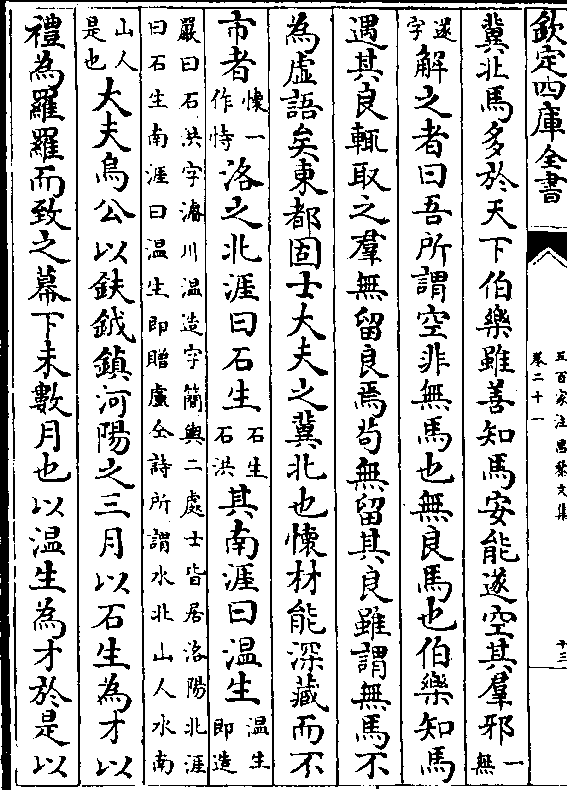 欽定四庫全書
五百家注昌黎文集
卷二十一
十三
冀北馬多於天下伯樂雖善知馬安能遂空其羣邪一無
遂字解之者曰吾所謂空非無馬也無良馬也伯樂知馬
遇其良輒取之羣無留良焉苟無留其良雖謂無馬不
為虛語矣東都固士大夫之冀北也懷材能深藏而不
市者懷一作恃洛之北涯曰石生石生石洪其南涯曰温生温生即造
嚴曰石洪字濬川温造字簡輿二處士皆居洛陽北涯
曰石生南涯曰温生即贈盧仝詩所謂水北山人水南
山人是也大夫烏公以鈇鉞鎮河陽之三月以石生為才以
禮為羅羅而致之幕下未數月也以温生為才於是以